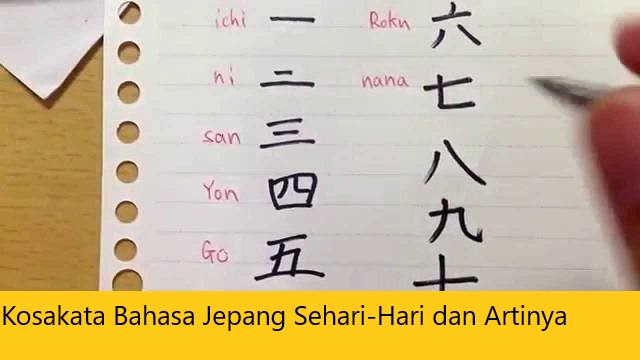 ichi 一 Roku 六
ni 二 nana 七
san 三 八
Yon 四 九
Go 五 十
Kosakata Bahasa Jepang Sehari-Hari dan Artinya